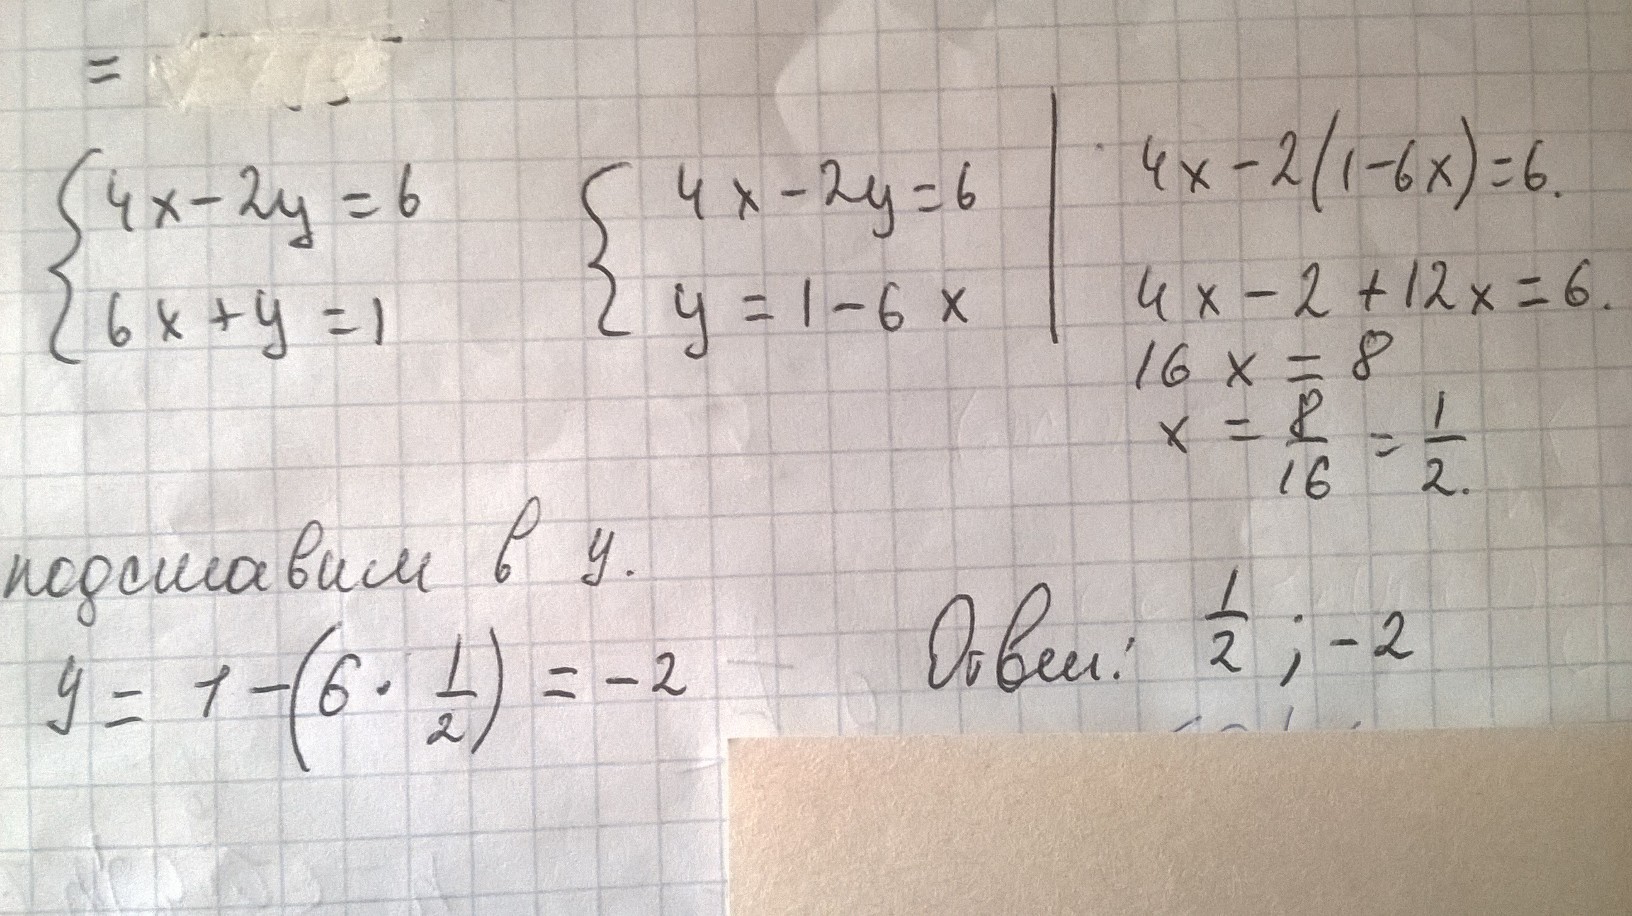 =
{ 4x - 2y = 6
6x + y = 1
{ 4x - 2y = 6
y = 1 - 6x
4x - 2(1 - 6x) = 6.
4x - 2 + 12x = 6.
16x = 8
x = 8/16 = 1/2.
подставим в y.
y = 1 - (6 · 1/2) = -2
Ответ: 1/2 ; -2